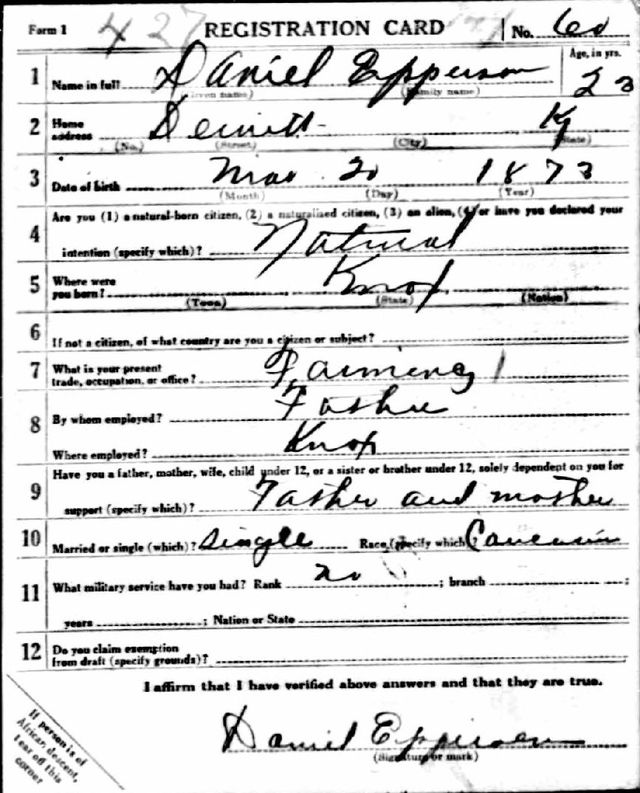 Form 1 427 REGISTRATION CARD No. 60
1 Name in full Daniel Epperson Age, in yrs. 23
(Given name) (Family name)
2 Home address Dewitt Ky
(No.) (Street) (City) (State)
3 Date of birth Mar 20 1873
(Month) (Day) (Year)
4 Are you (1) a natural-born citizen, (2) a naturalized citizen, (3) an alien, (4) or have you declared your
intention (specify which)? Natural
5 Where were you born? Knox
(Town) (State) (Nation)
6 If not a citizen, of what country are you a citizen or subject?
7 What is your present trade, occupation, or office? Farming 1
8 By whom employed? Father
Where employed? Knox
9 Have you a father, mother, wife, child under 12, or a sister or brother under 12, solely dependent on you for
support (specify which)? Father and mother
10 Married or single (which)? Single Race (specify which)? Caucasian
11 What military service have you had? Rank no ; branch ;
years ; Nation or State
12 Do you claim exemption
from draft (specify grounds)?
I affirm that I have verified above answers and that they are true.
Daniel Epperson
(Signature or mark)
If person is of
African descent,
tear off this
corner